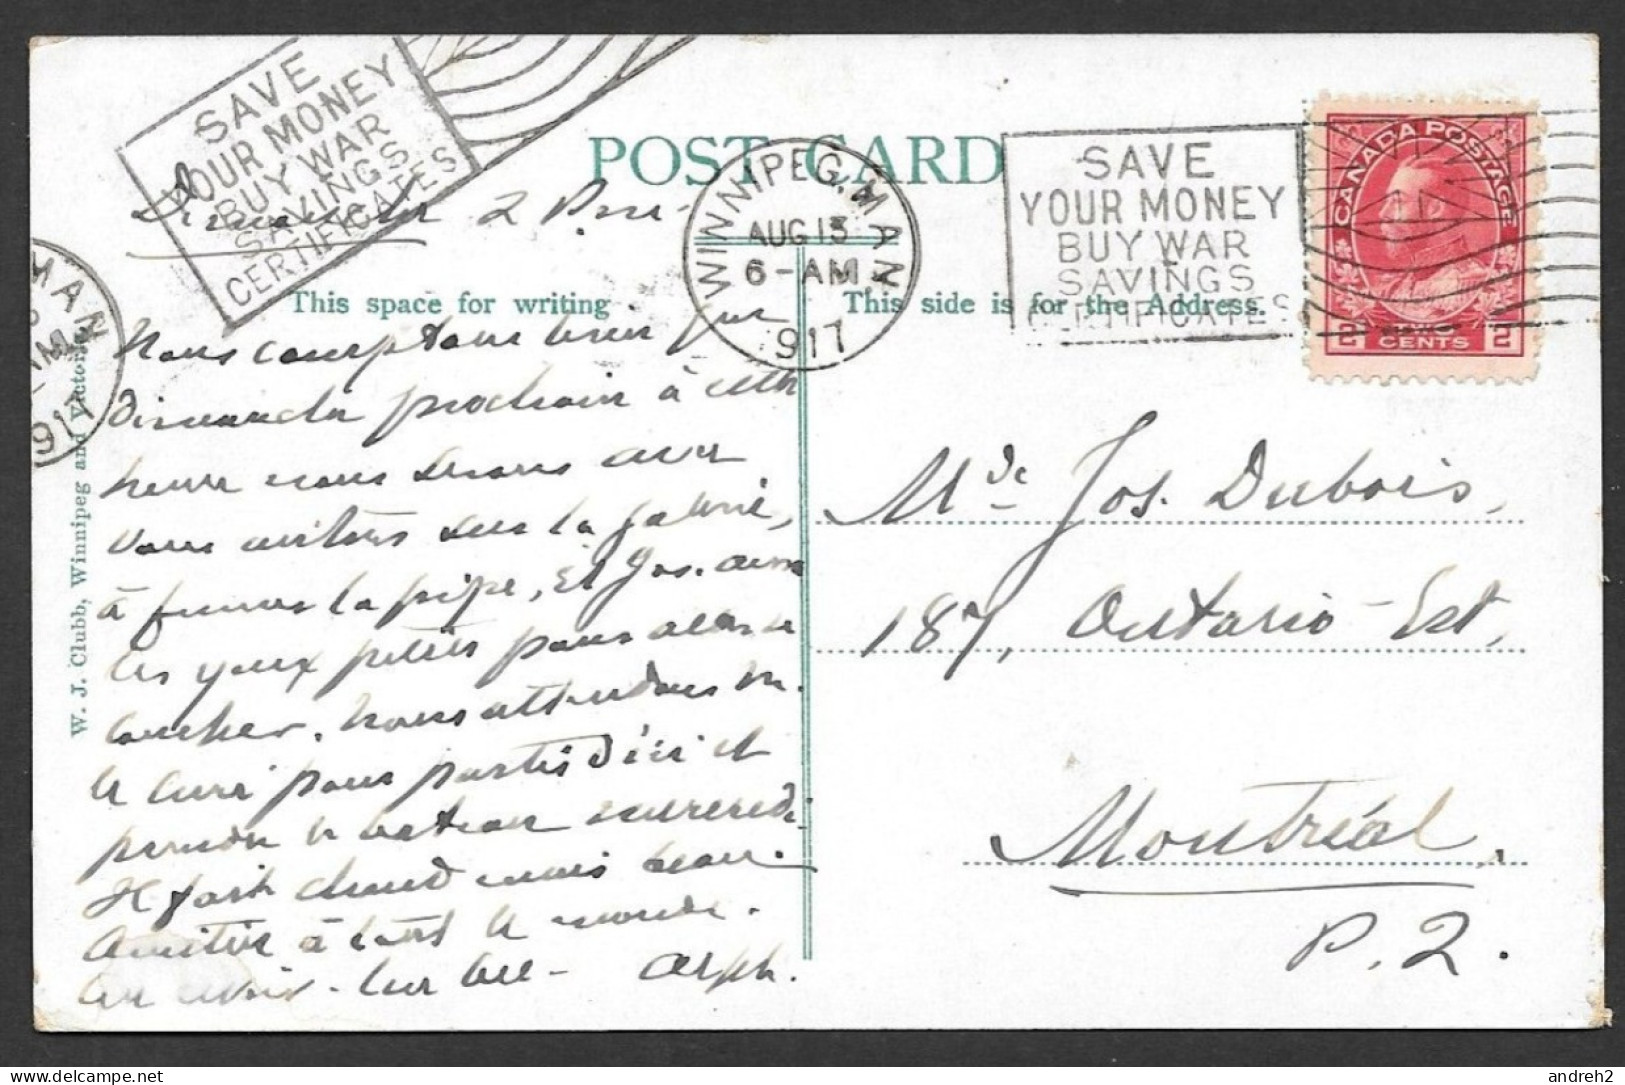 SAVE
YOUR MONEY
BUY WAR
SAVINGS
CERTIFICATES
POST CARD
WINNIPEG. MAN.
AUG 13
6-AM
917
SAVE
YOUR MONEY
BUY WAR
SAVINGS
CERTIFICATES
CANADA POSTAGE
2 CENTS 2
Dimanche 2 P.M.
MAN
917
This space for writing
This side is for the Address.
W. J. Clubb, Winnipeg and Victoria
Nous comptons bien que
dimanche prochain à cette
heure nous serons avec
vous autres sur la galerie,
à fumer la pipe, et Jos. aura
les yeux petits pour aller se
coucher. Nous attendons M.
le curé pour partir d'ici et
prendre le bateau mercredi.
Il fait chaud mais beau.
Amitiés à tout le monde.
Au revoir - Alph.
Mde Jos. Dubois,
187, Ontario-Est,
Montréal,
P. 2.
andreh2